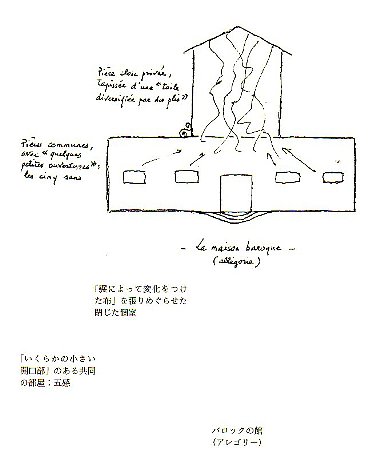 Pièce close privée,
tapissée d'une "toile
diversifiée par des plis"
Pièces communes,
avec "quelques
petites ouvertures":
les cinq sens
- La maison baroque -
(allégorie)
「襞によって変化をつけ
た布」を張りめぐらせた
閉じた個室
「いくらかの小さい
開口部」のある共同
の部屋：五感
バロックの館
（アレゴリー）